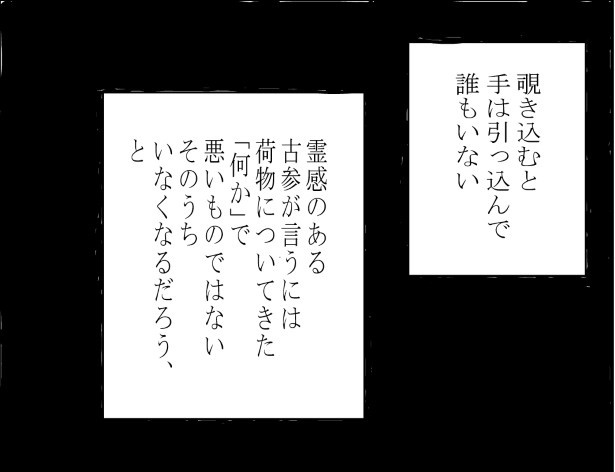 覗き込むと
手は引っ込んで
誰もいない
霊感のある
古参が言うには
荷物についてきた
「何か」で
悪いものではない
そのうち
いなくなるだろう、
と